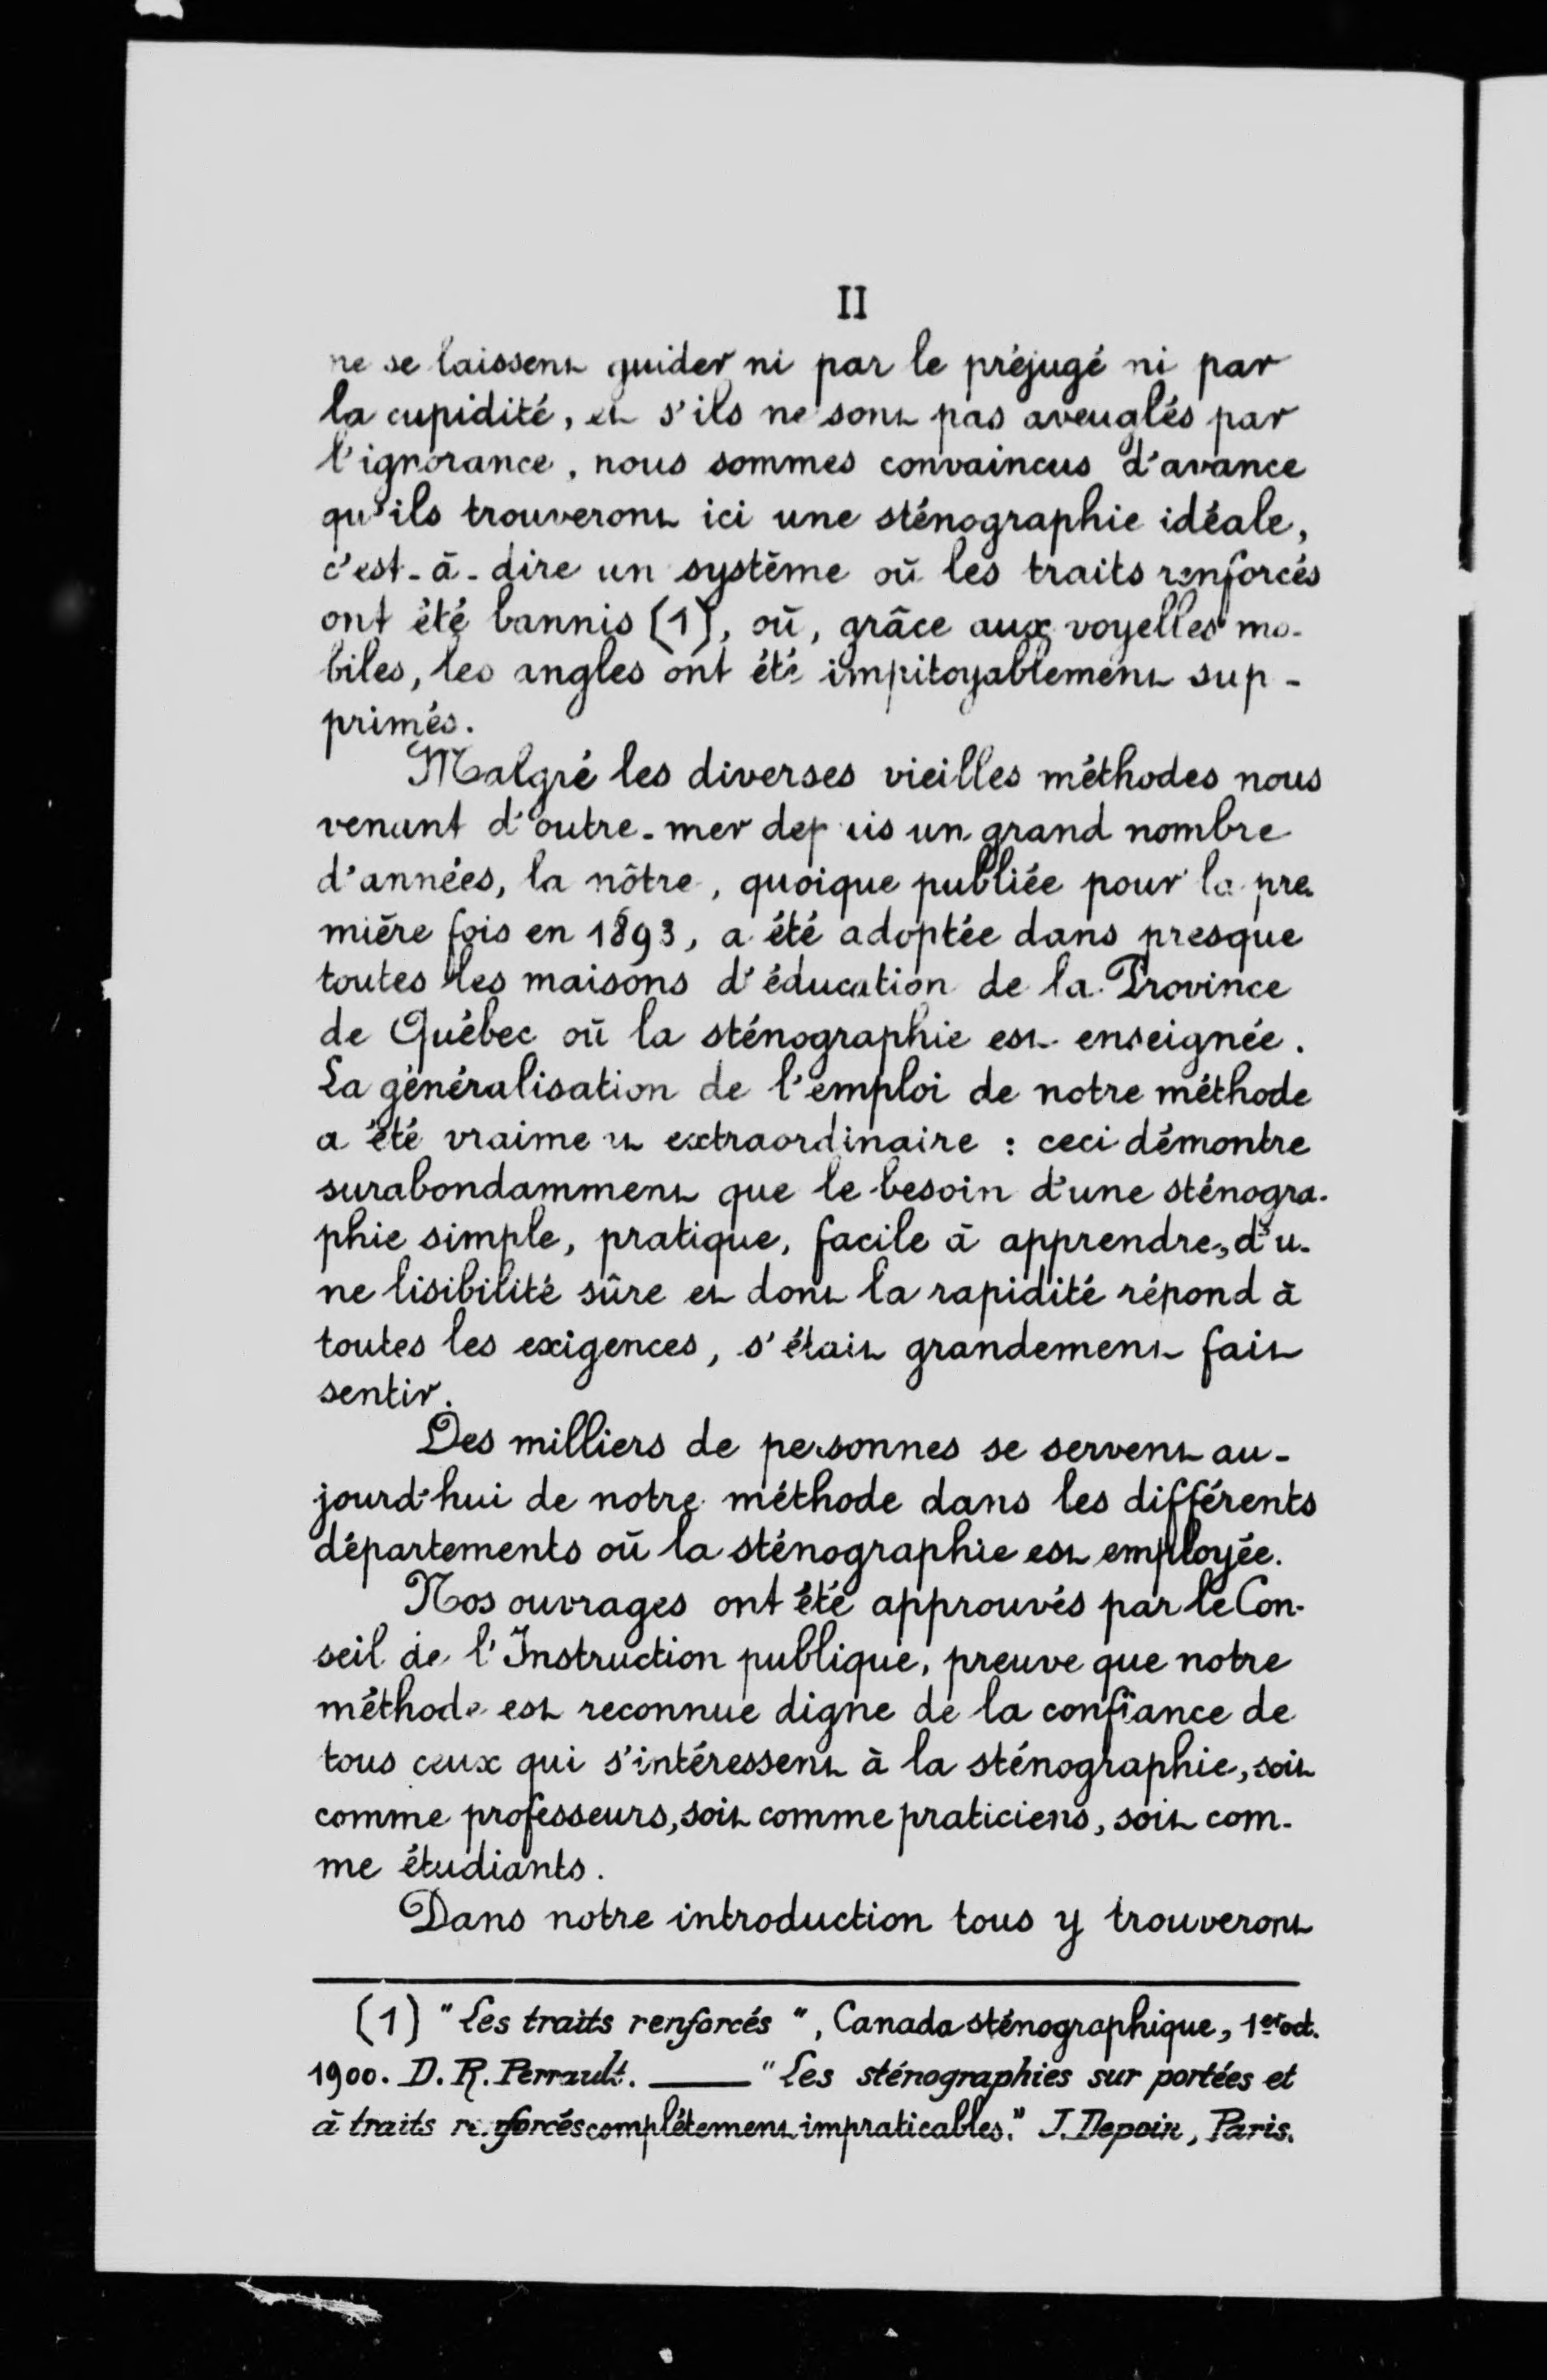 II
ne se laissent guider ni par le préjugé ni par
la cupidité, et s'ils ne sont pas aveuglés par
l'ignorance, nous sommes convaincus d'avance
qu'ils trouveront ici une sténographie idéale,
c'est-à-dire un système où les traits renforcés
ont été bannis (1), où, grâce aux voyelles mo-
biles, les angles ont été impitoyablement sup-
primés.
Malgré les diverses vieilles méthodes nous
venant d'outre-mer depuis un grand nombre
d'années, la nôtre, quoique publiée pour la pre-
mière fois en 1893, a été adoptée dans presque
toutes les maisons d'éducation de la Province
de Québec où la sténographie est enseignée.
La généralisation de l'emploi de notre méthode
a été vraiment extraordinaire : ceci démontre
surabondamment que le besoin d'une sténogra-
phie simple, pratique, facile à apprendre, d'u-
ne lisibilité sûre et dont la rapidité répond à
toutes les exigences, s'était grandement fait
sentir.
Des milliers de personnes se servent au-
jourd'hui de notre méthode dans les différents
départements où la sténographie est employée.
Nos ouvrages ont été approuvés par le Con-
seil de l'Instruction publique, preuve que notre
méthode est reconnue digne de la confiance de
tous ceux qui s'intéressent à la sténographie, soit
comme professeurs, soit comme praticiens, soit com-
me étudiants.
Dans notre introduction tous y trouveront
(1) "Les traits renforcés", Canada sténographique, 1er oct.
1900. D. R. Perrault. — "Les sténographies sur portées et
à traits renforcés complètement impraticables." J. Depoin, Paris.